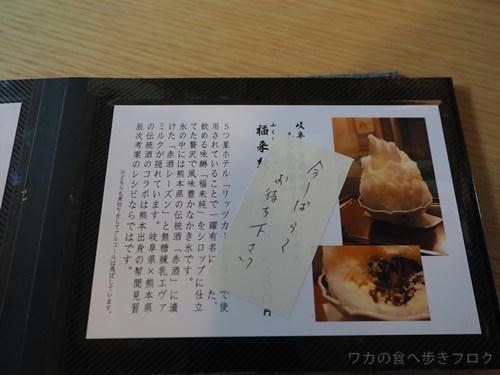 岐阜
ふく
福来
今しばらく
お待ち下さい
円
5つ星ホテル「リッツカー
で使
用されていることで一躍有名に
た、
飲める味醂「福来純」をシロップに仕立
てた贅沢で風味豊かなかき氷です。
氷の中には熊本県の伝統酒「赤酒」に漬
けた「赤酒レーズン」と無糖練乳エヴァ
ミルクが隠れています。岐阜県×熊本県
の伝統酒のコラボは熊本出身の幇間見習
辰次考案のレシピならではです。
※どちらも煮切りをしてアルコールは飛ばしています。
ワカの食べ歩きブログ